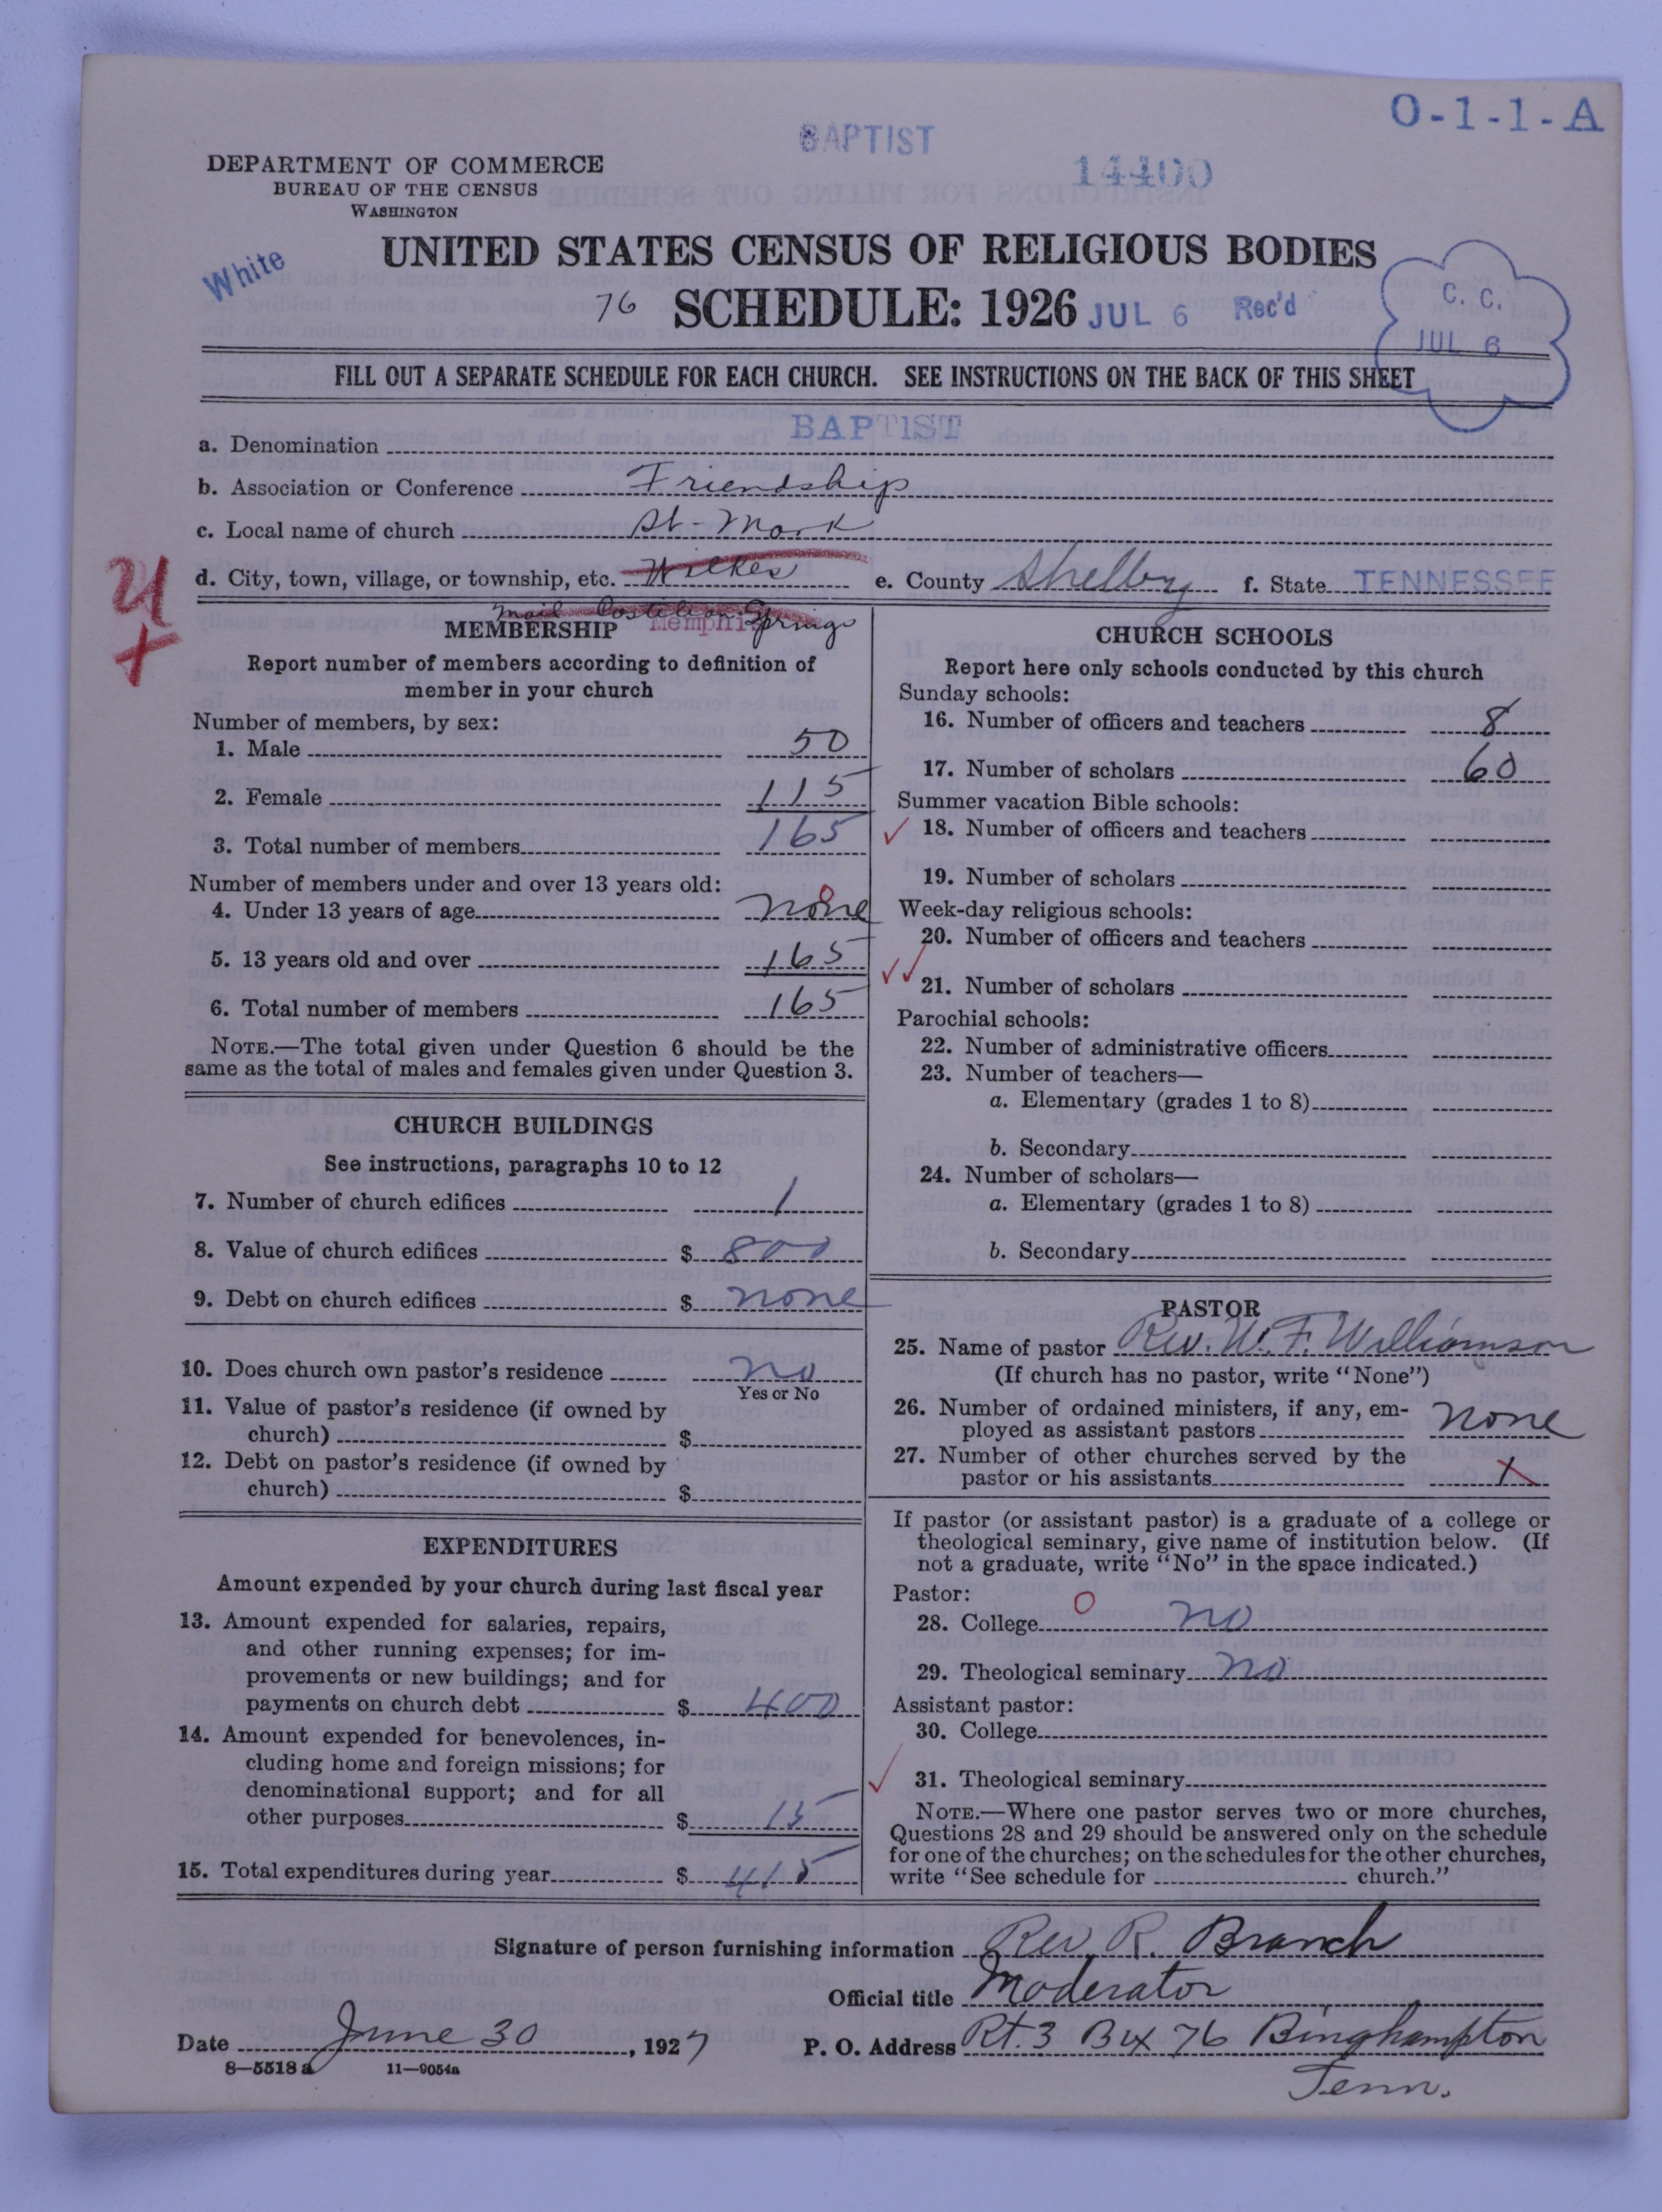 O-1-1-A
BAPTIST
14400
DEPARTMENT OF COMMERCE
BUREAU OF THE CENSUS
WASHINGTON
White
UNITED STATES CENSUS OF RELIGIOUS BODIES
76 SCHEDULE: 1926 JUL 6 Rec'd
C. C.
JUL 6
FILL OUT A SEPARATE SCHEDULE FOR EACH CHURCH. SEE INSTRUCTIONS ON THE BACK OF THIS SHEET
a. Denomination BAPTIST
b. Association or Conference Friendship
c. Local name of church St-Mark
d. City, town, village, or township, etc. Wilkes e. County Shelby f. State TENNESSEE
Mail Springs
Memphis
MEMBERSHIP
Report number of members according to definition of
member in your church
Number of members, by sex:
1. Male 50
2. Female 115
3. Total number of members 165
Number of members under and over 13 years old:
4. Under 13 years of age none 0
5. 13 years old and over 165
6. Total number of members 165
NOTE.—The total given under Question 6 should be the
same as the total of males and females given under Question 3.
CHURCH BUILDINGS
See instructions, paragraphs 10 to 12
7. Number of church edifices 1
8. Value of church edifices $ 800
9. Debt on church edifices $ none
10. Does church own pastor's residence no
Yes or No
11. Value of pastor's residence (if owned by
church) $
12. Debt on pastor's residence (if owned by
church) $
EXPENDITURES
Amount expended by your church during last fiscal year
13. Amount expended for salaries, repairs,
and other running expenses; for im-
provements or new buildings; and for
payments on church debt $ 400
14. Amount expended for benevolences, in-
cluding home and foreign missions; for
denominational support; and for all
other purposes $ 15
15. Total expenditures during year $ 415
CHURCH SCHOOLS
Report here only schools conducted by this church
Sunday schools:
16. Number of officers and teachers 8
17. Number of scholars 60
Summer vacation Bible schools:
18. Number of officers and teachers
19. Number of scholars
Week-day religious schools:
20. Number of officers and teachers
21. Number of scholars
Parochial schools:
22. Number of administrative officers
23. Number of teachers—
a. Elementary (grades 1 to 8)
b. Secondary
24. Number of scholars—
a. Elementary (grades 1 to 8)
b. Secondary
PASTOR
25. Name of pastor Rev. W. F. Williamson
(If church has no pastor, write "None")
26. Number of ordained ministers, if any, em-
ployed as assistant pastors none
27. Number of other churches served by the
pastor or his assistants 1
If pastor (or assistant pastor) is a graduate of a college or
theological seminary, give name of institution below. (If
not a graduate, write "No" in the space indicated.)
Pastor:
28. College 0 no
29. Theological seminary no
Assistant pastor:
30. College
31. Theological seminary
NOTE.—Where one pastor serves two or more churches,
Questions 28 and 29 should be answered only on the schedule
for one of the churches; on the schedules for the other churches,
write "See schedule for church."
Signature of person furnishing information Rev. R. Branch
Official title Moderator
Date June 30, 1927 P. O. Address Rt. 3 Bx 76 Binghampton
Tenn.
8—5518a 11—9054a